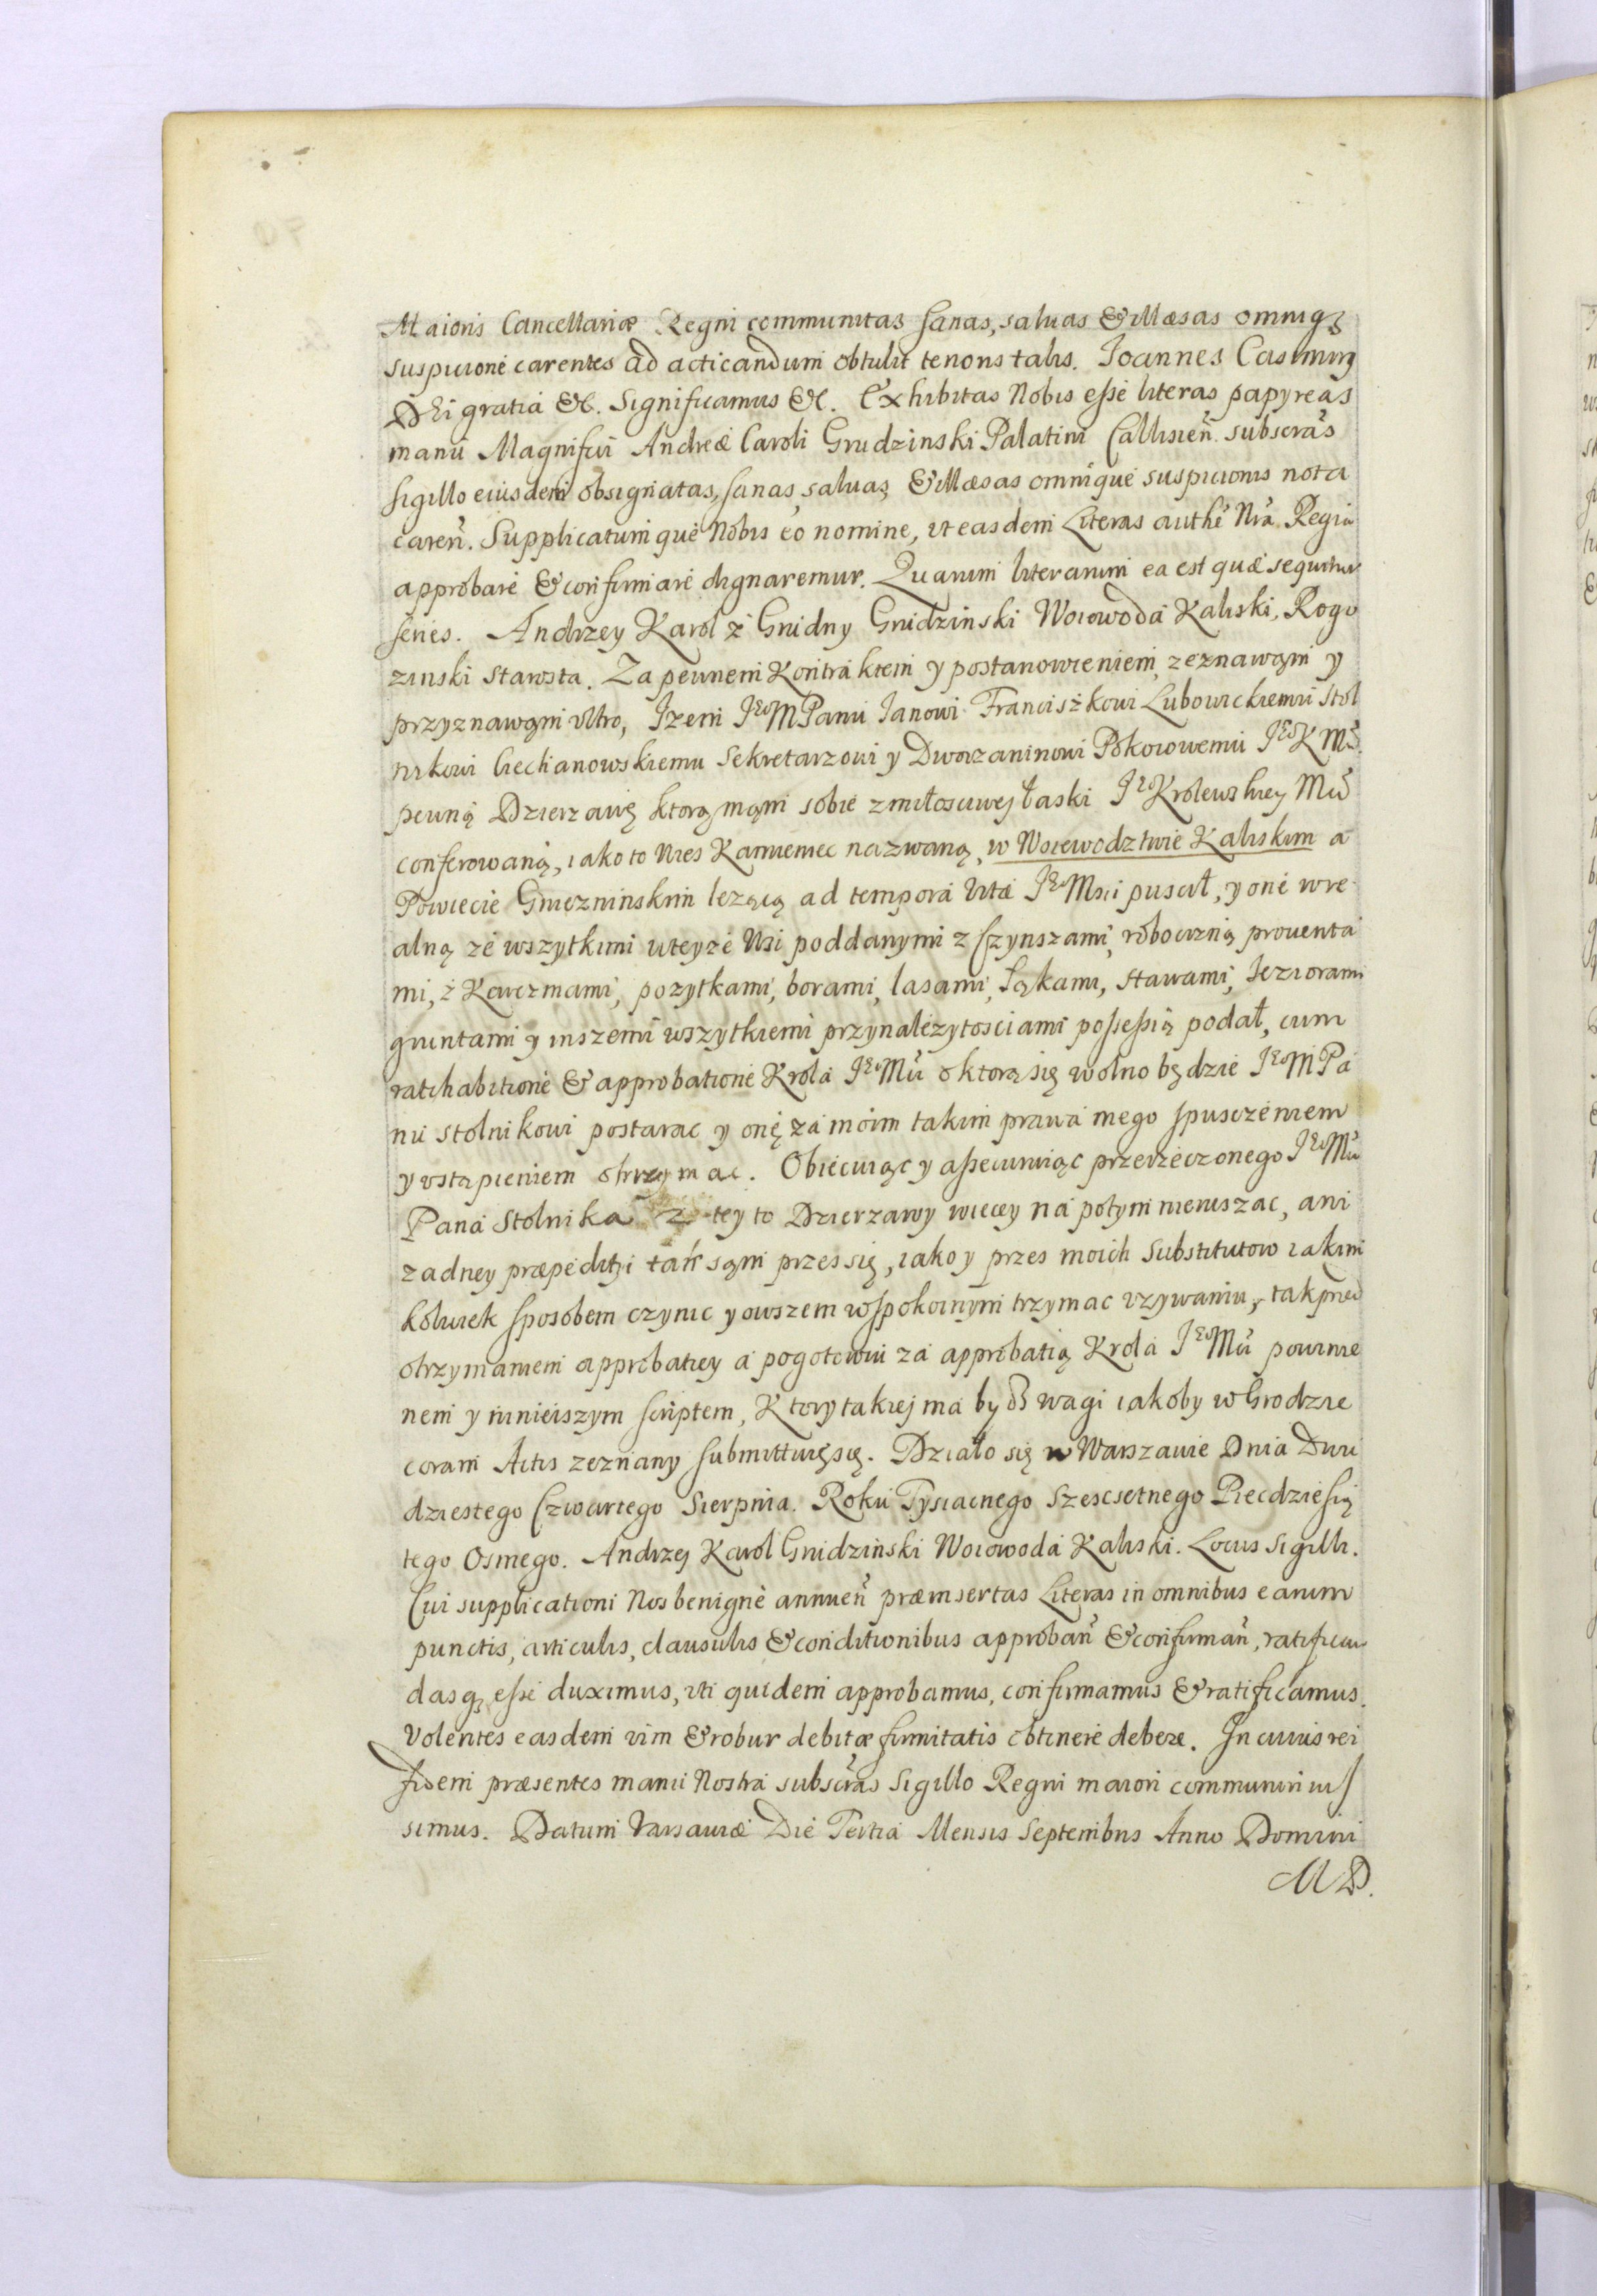 Maioris Cancellariæ Regni communitas sanas, saluas & illæsas omniq₃
suspicione carentes ad acticandum obtulit tenoris talis. Joannes Casimirꝰ
DEi gratia &c. Significamus &c. Exhibitas Nobis esse literas papyreas
manu Magnifici Andreæ Caroli Grudzinski Palatini Callisien̄. subscrās
sigillo eiusdem obsignatas, sanas, saluas, & illæsas omnique suspicionis nota
caren̄. Supplicatumque Nobis eo nomine, vt easdem Literas authē Nrā Regia
approbare & confirmare dignaremur. Quarum literarum ea est quæ sequitur
series. Andrzey Karol z Grudny Grudzinski Woiowoda Kaliski, Rogo
zinski Starosta. Za pewnem Kontraktem y postanowieniem, zeznawam y
przyznawam vltro, Izem JEoM Panu Janowi Franciszkowi Lubowickiemu Stol
nikowi Ciechanowskiemu Sekretarzowi y Dworzaninowi Pokoiowemu JEoKMci.
pewną Dzierzawę ktorą mąm sobie z miłosciwej łaski JEoKrolewskiey Mci
conferowaną, iako to Wies Kamieniec nazwaną, w Woiewodztwie Kaliskim a
Powiecie Gnieznińskim lezącą ad tempora Vitæ JEoMsci puscił, y onę w re
alną ze wszytkimi w teyze Wsi poddanymi z czynszami, robocizną prouenta
mi, z Karczmami, pozytkami, borami, lasami, Łąkami, stawami, Jeziorami
gruntami y inszemi wszytkiemi przynalezytosciami possessią podał, cum
ratihabitione & approbatione Krola JEoMci o ktorą się wolno będzie JEoM Pa
nu Stolnikowi postarac y onę za moim takim prawa mego spusczeniem
y vstąpieniem otrzymac. Obiecuiąc y assecuruiąc przerzeczonego JEoMci
Pana Stolnika z tey to Dzierzawy wiecey na potym nieruszac, ani
zadney præpeditij tak sąm przes się, iako y przes moich Substitutow iakim
kolwiek sposobem czynic y owszem w spokoinym trzymac vzywaniu, tak przed
otrzymaniem approbatiey a pogotowiu za approbatią Krola JEoMci powinie
nem y ninieiszym scriptem, Ktory takiej ma bydz wagi iakoby w Grodzie
coram Actis zeznany submittuię się. Działo się w Warszawie Dnia Dwu
dziestego Czwartego Sierpnia. Roku Tysiacnego Szescsetnego Piecdziesią
tego Osmego. Andrzej Karol Grudzinski Woiowoda Kaliski. Locus Sigilli.
Cui supplicationi Nos benignè annuen̄ præinsertas Literas in omnibus earum
punctis, articulis, clausulis & conditionibus approban̄ & confirman̄, ratifican
dasq₃ esse duximus, vti quidem approbamus, confirmamus & ratificamus.
Volentes easdem vim & robur debitæ firmitatis obtinere debere. In cuius rei
fidem præsentes manu Nostra subscrās Sigillo Regni maiori communiri ius
simus. Datum Varsauiæ Die Tertia Mensis Septembris Anno Domini
MD.